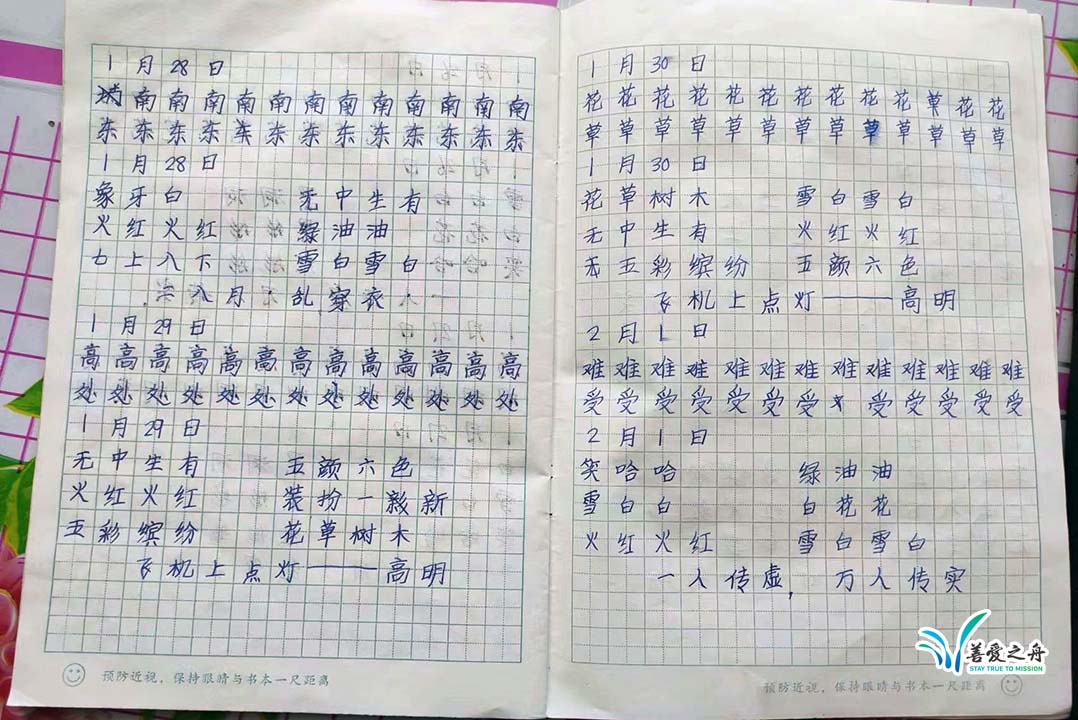 1月28日
南南南南南南南南南南南南
东东东东东东东东东东东东东
1月28日
象牙白 无中生有
火红火红 绿油油
七上八下 雪白雪白
八月:乱穿衣
1月29日
高高高高高高高高高高高高高
处处处处处处处处处处处处处
1月29日
无中生有 五颜六色
火红火红 装扮一新
五彩缤纷 花草树木
飞机上点灯——高明
预防近视，保持眼睛与书本一尺距离
1月30日
花花花花花花花花花花草花花
草草草草草草草草草草草草草
1月30日
花草树木 雪白雪白
无中生有 火红火红
五彩缤纷 五颜六色
飞机上点灯——高明
2月1日
难难难难难难难难难难难难难
受受受受受受受受受受受受
2月1日
笑哈哈 绿油油
雪白白 白花花
火红火红 雪白雪白
一人传虚，万人传实
预防近视，保持眼睛与书本一尺距离
善爱之舟
STAY TRUE TO MISSION